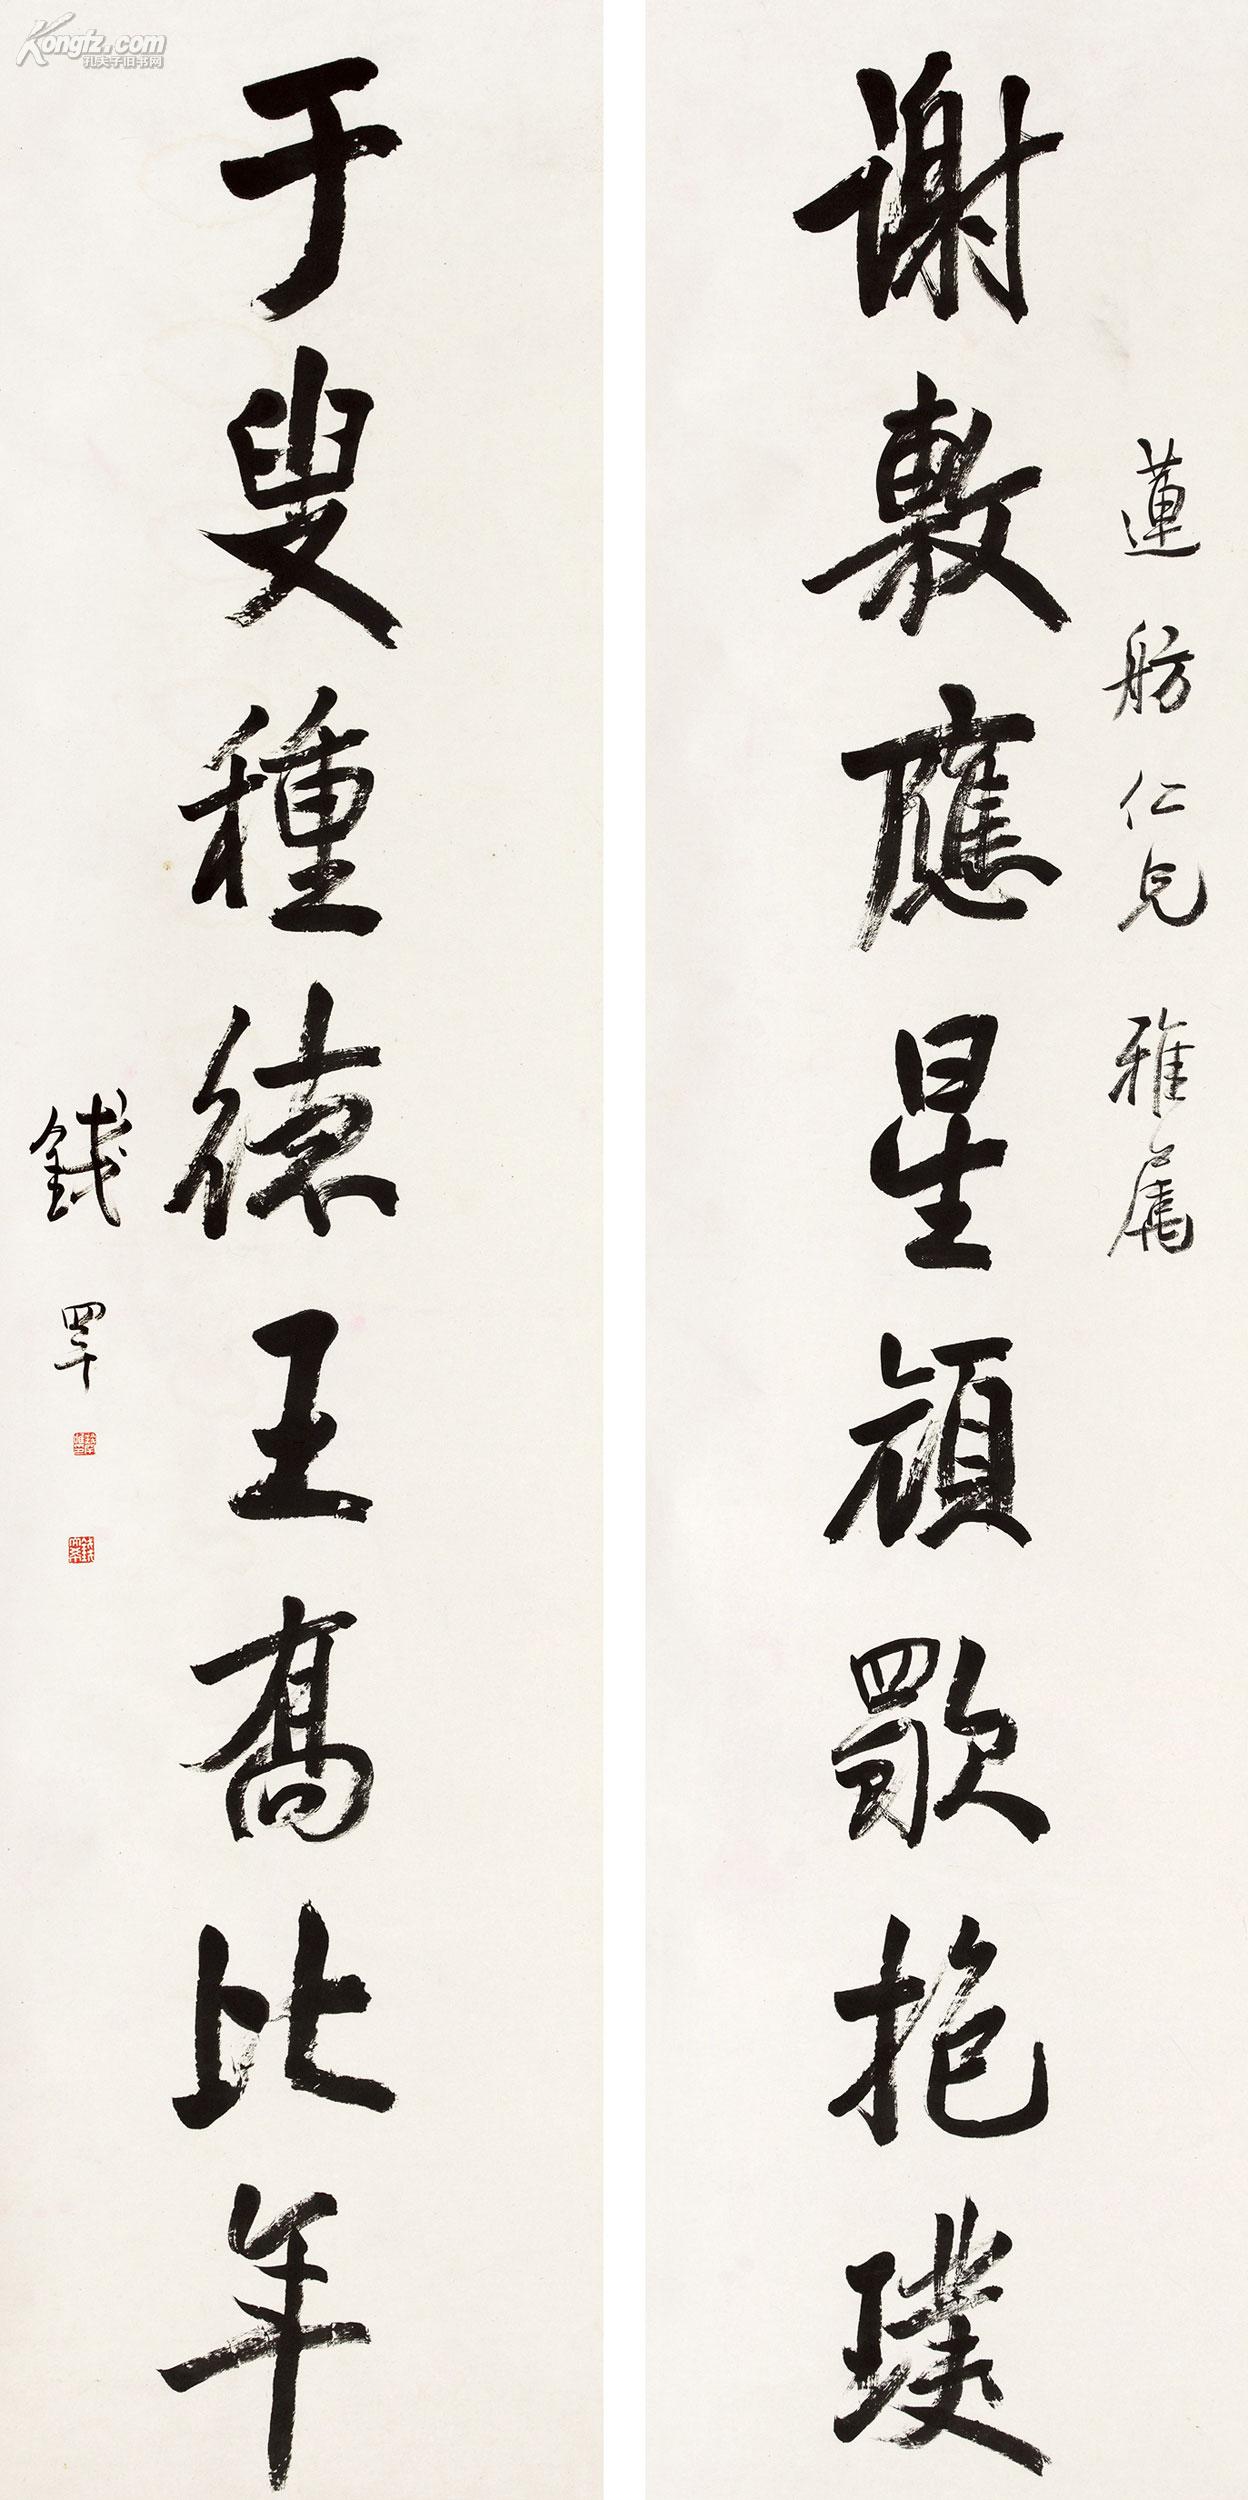 Kongfz.com
孔夫子旧书网
蓮舫仁兄雅屬
謝敷應星顏歜抱璞
于叟種德王喬比年
錢罕